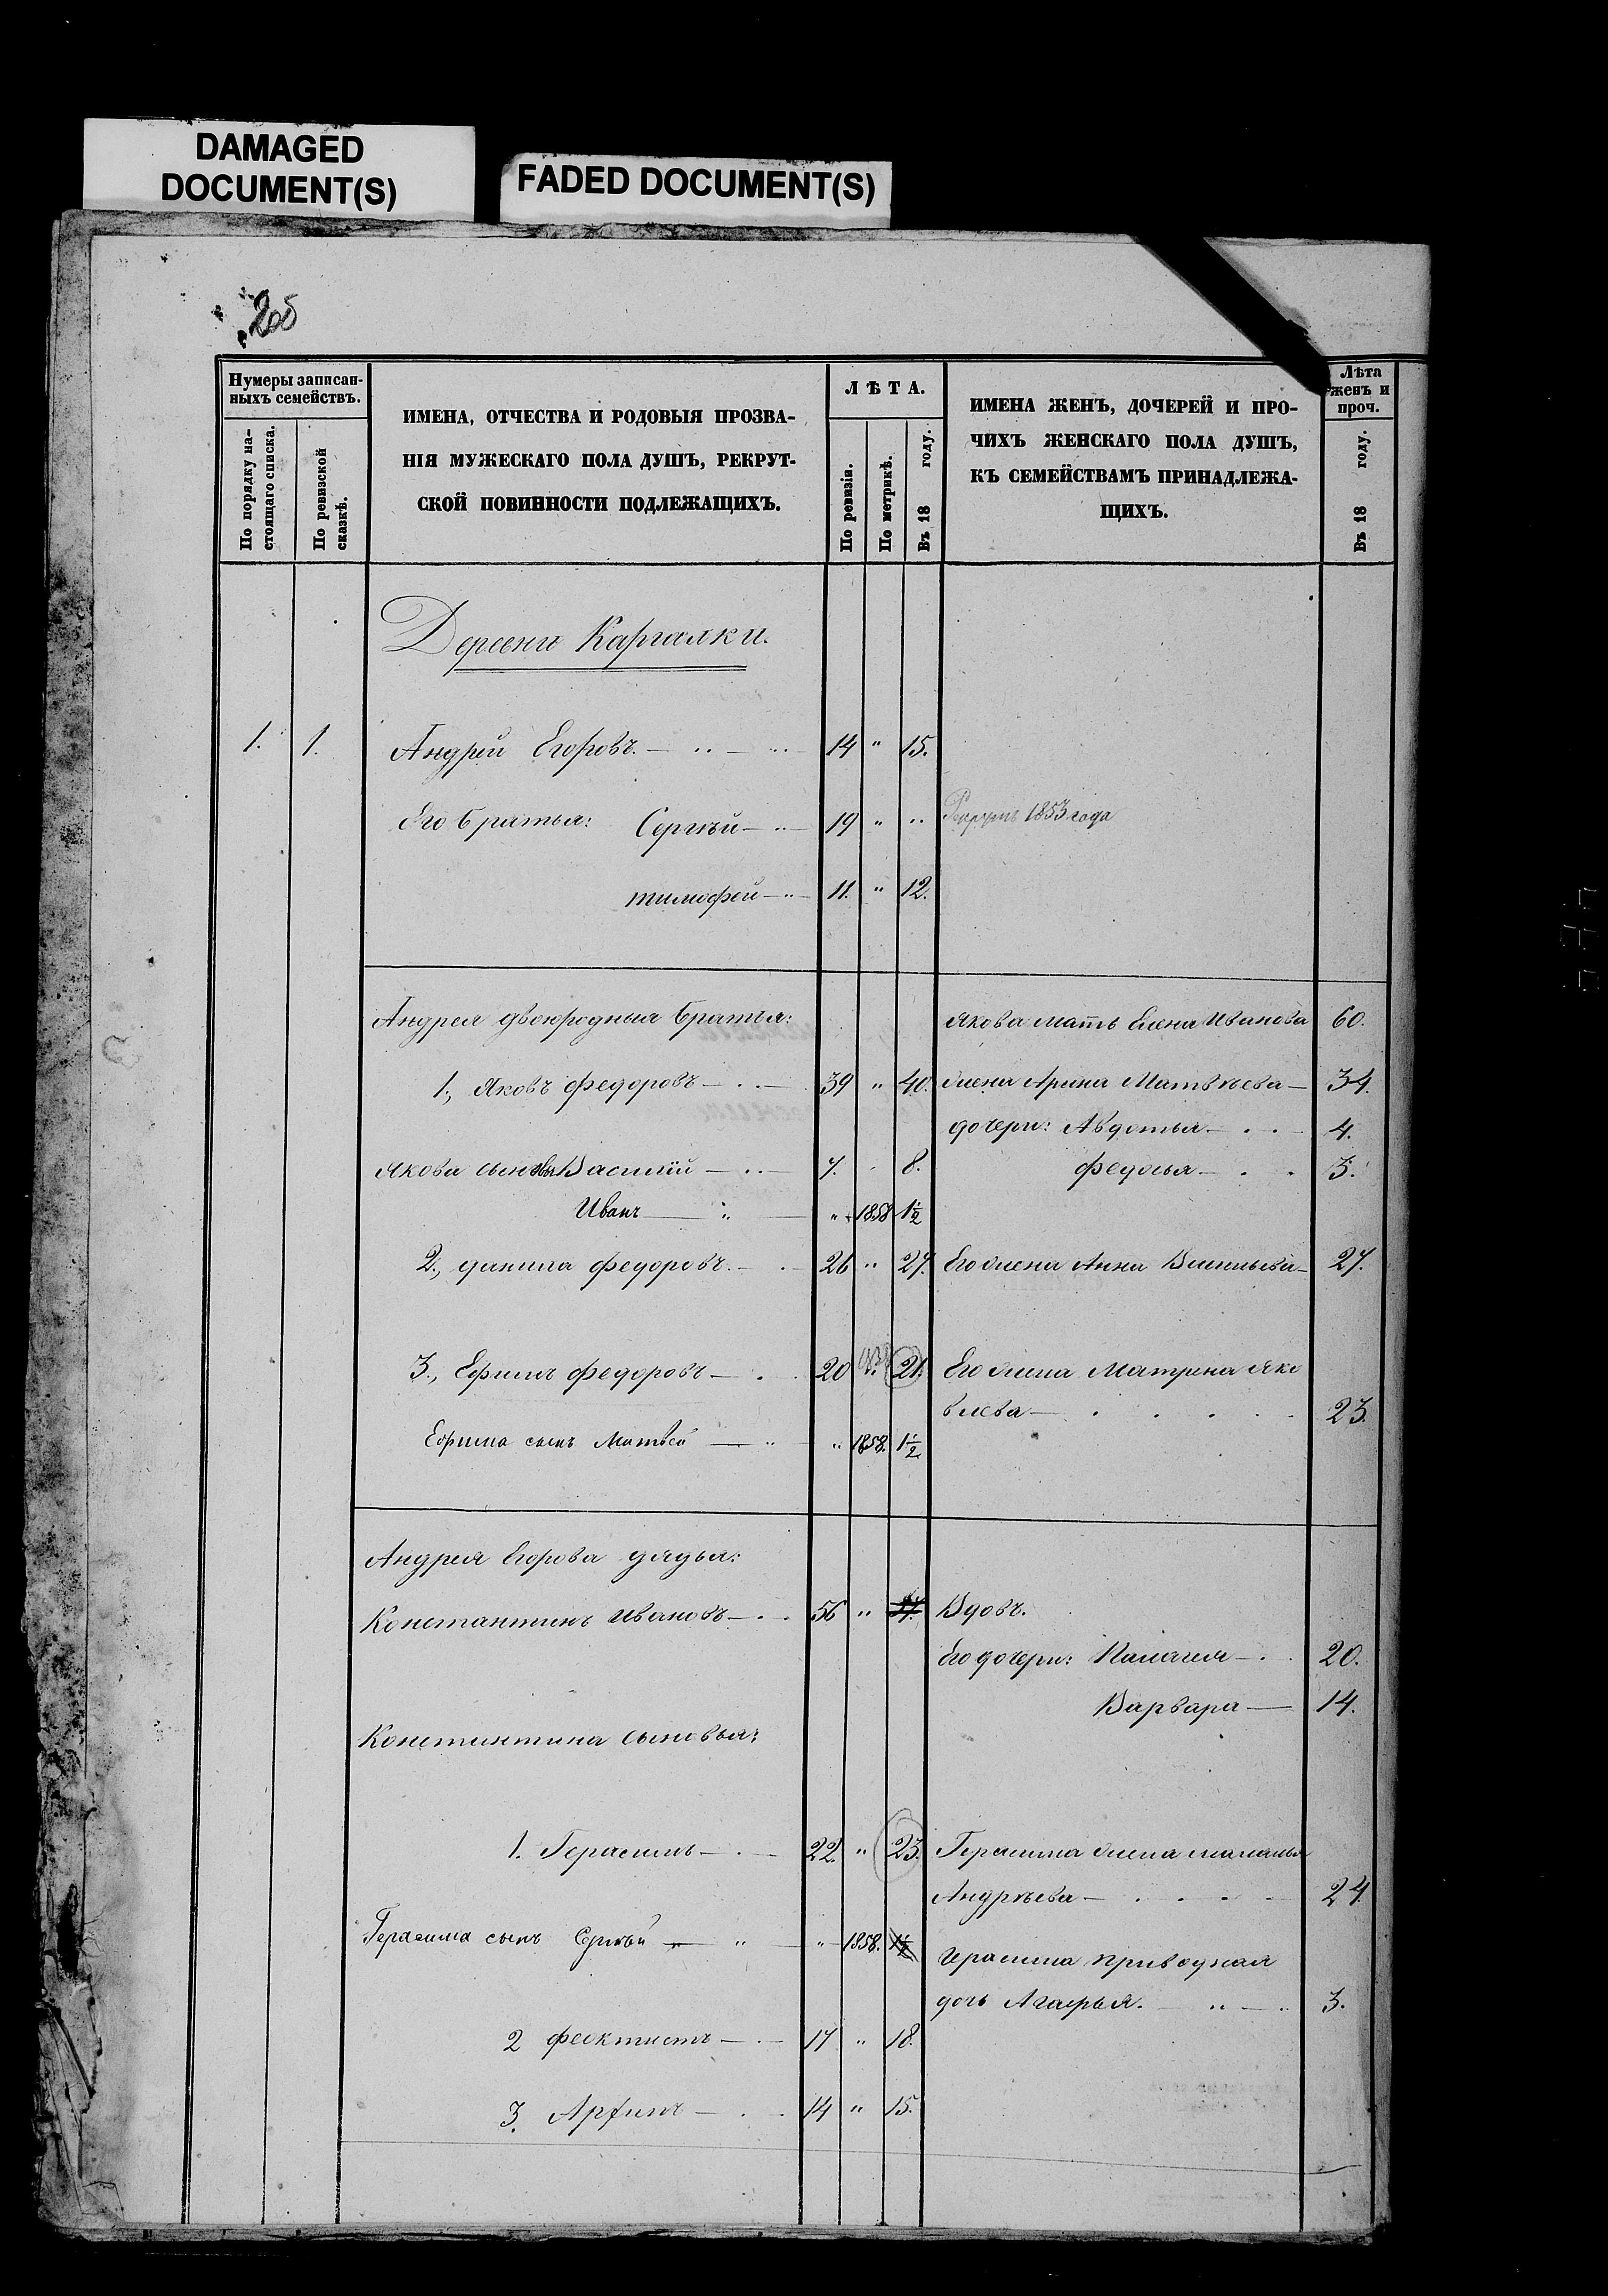 DAMAGED
DOCUMENT(S)
FADED DOCUMENT(S)
Нумеры записан-
ныхъ семействъ.
По порядку на-
стоящаго списка.
По ревизской
сказкѣ.
ИМЕНА, ОТЧЕСТВА И РОДОВЫЯ ПРОЗВА-
НІЯ МУЖЕСКАГО ПОЛА ДУШЪ, РЕКРУТ-
СКОЙ ПОВИННОСТИ ПОДЛЕЖАЩИХЪ.
ЛѢТА.
По ревизіи.
По метрикѣ.
Въ 18 году.
ИМЕНА ЖЕНЪ, ДОЧЕРЕЙ И ПРО-
ЧИХЪ ЖЕНСКАГО ПОЛА ДУШЪ,
КЪ СЕМЕЙСТВАМЪ ПРИНАДЛЕЖА-
ЩИХЪ.
Лѣта
женъ и
проч.
Въ 18 году.
Деревни Каргалки.
1. 1. Андрей Егоровъ. — 14 " 15.
Его братья: Сергѣй — 19 " " Рекрутъ 1853 года
тимофей — 11. " 12.
Андрея двоюродныя братья: Якова мать Елена Иванова 60.
1., Яковъ федоровъ — 39 " 40. жена Арина Матвѣева — 34.
дочери: Авдотья — 4.
Якова сыновья Василій — 7. 8. федосья — 3.
Иванъ — " 1858 1½
2., данила федоровъ. — 26 " 27. Его жена Анна Васильева — 27.
3., Ефимъ федоровъ — 20 21. Его жена Матрена Яко
влева — 23.
Ефима сынъ Матвей — " 1858. 1½
Андрея Егорова дядья:
Константинъ Ивановъ — 56 " Вдовъ.
Его дочери: Палагея — 20.
Варвара — 14.
Константина сыновья:
1. Герасимъ — 22. " 23. Герасима жена маланья
Андрѣева — 24.
Герасима сынъ Сергѣй — " 1858.
Герасима приводная
дочь Агафья. — 3.
2 феоктистъ — 17 " 18.
3. — 14 " 15.